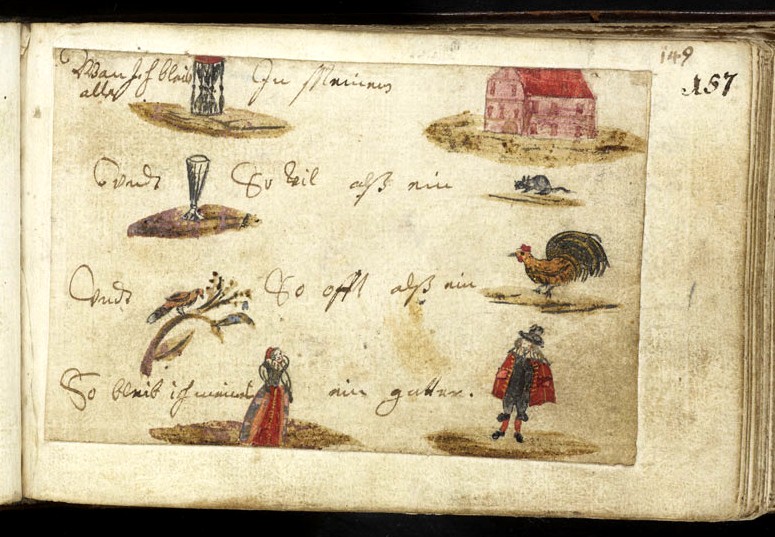 149
157
Wan ich bleib In Meinem
alle
Vndt So Vil alß ein
Vndt So offt alß ein
So bleib ich meiner ein gutter.